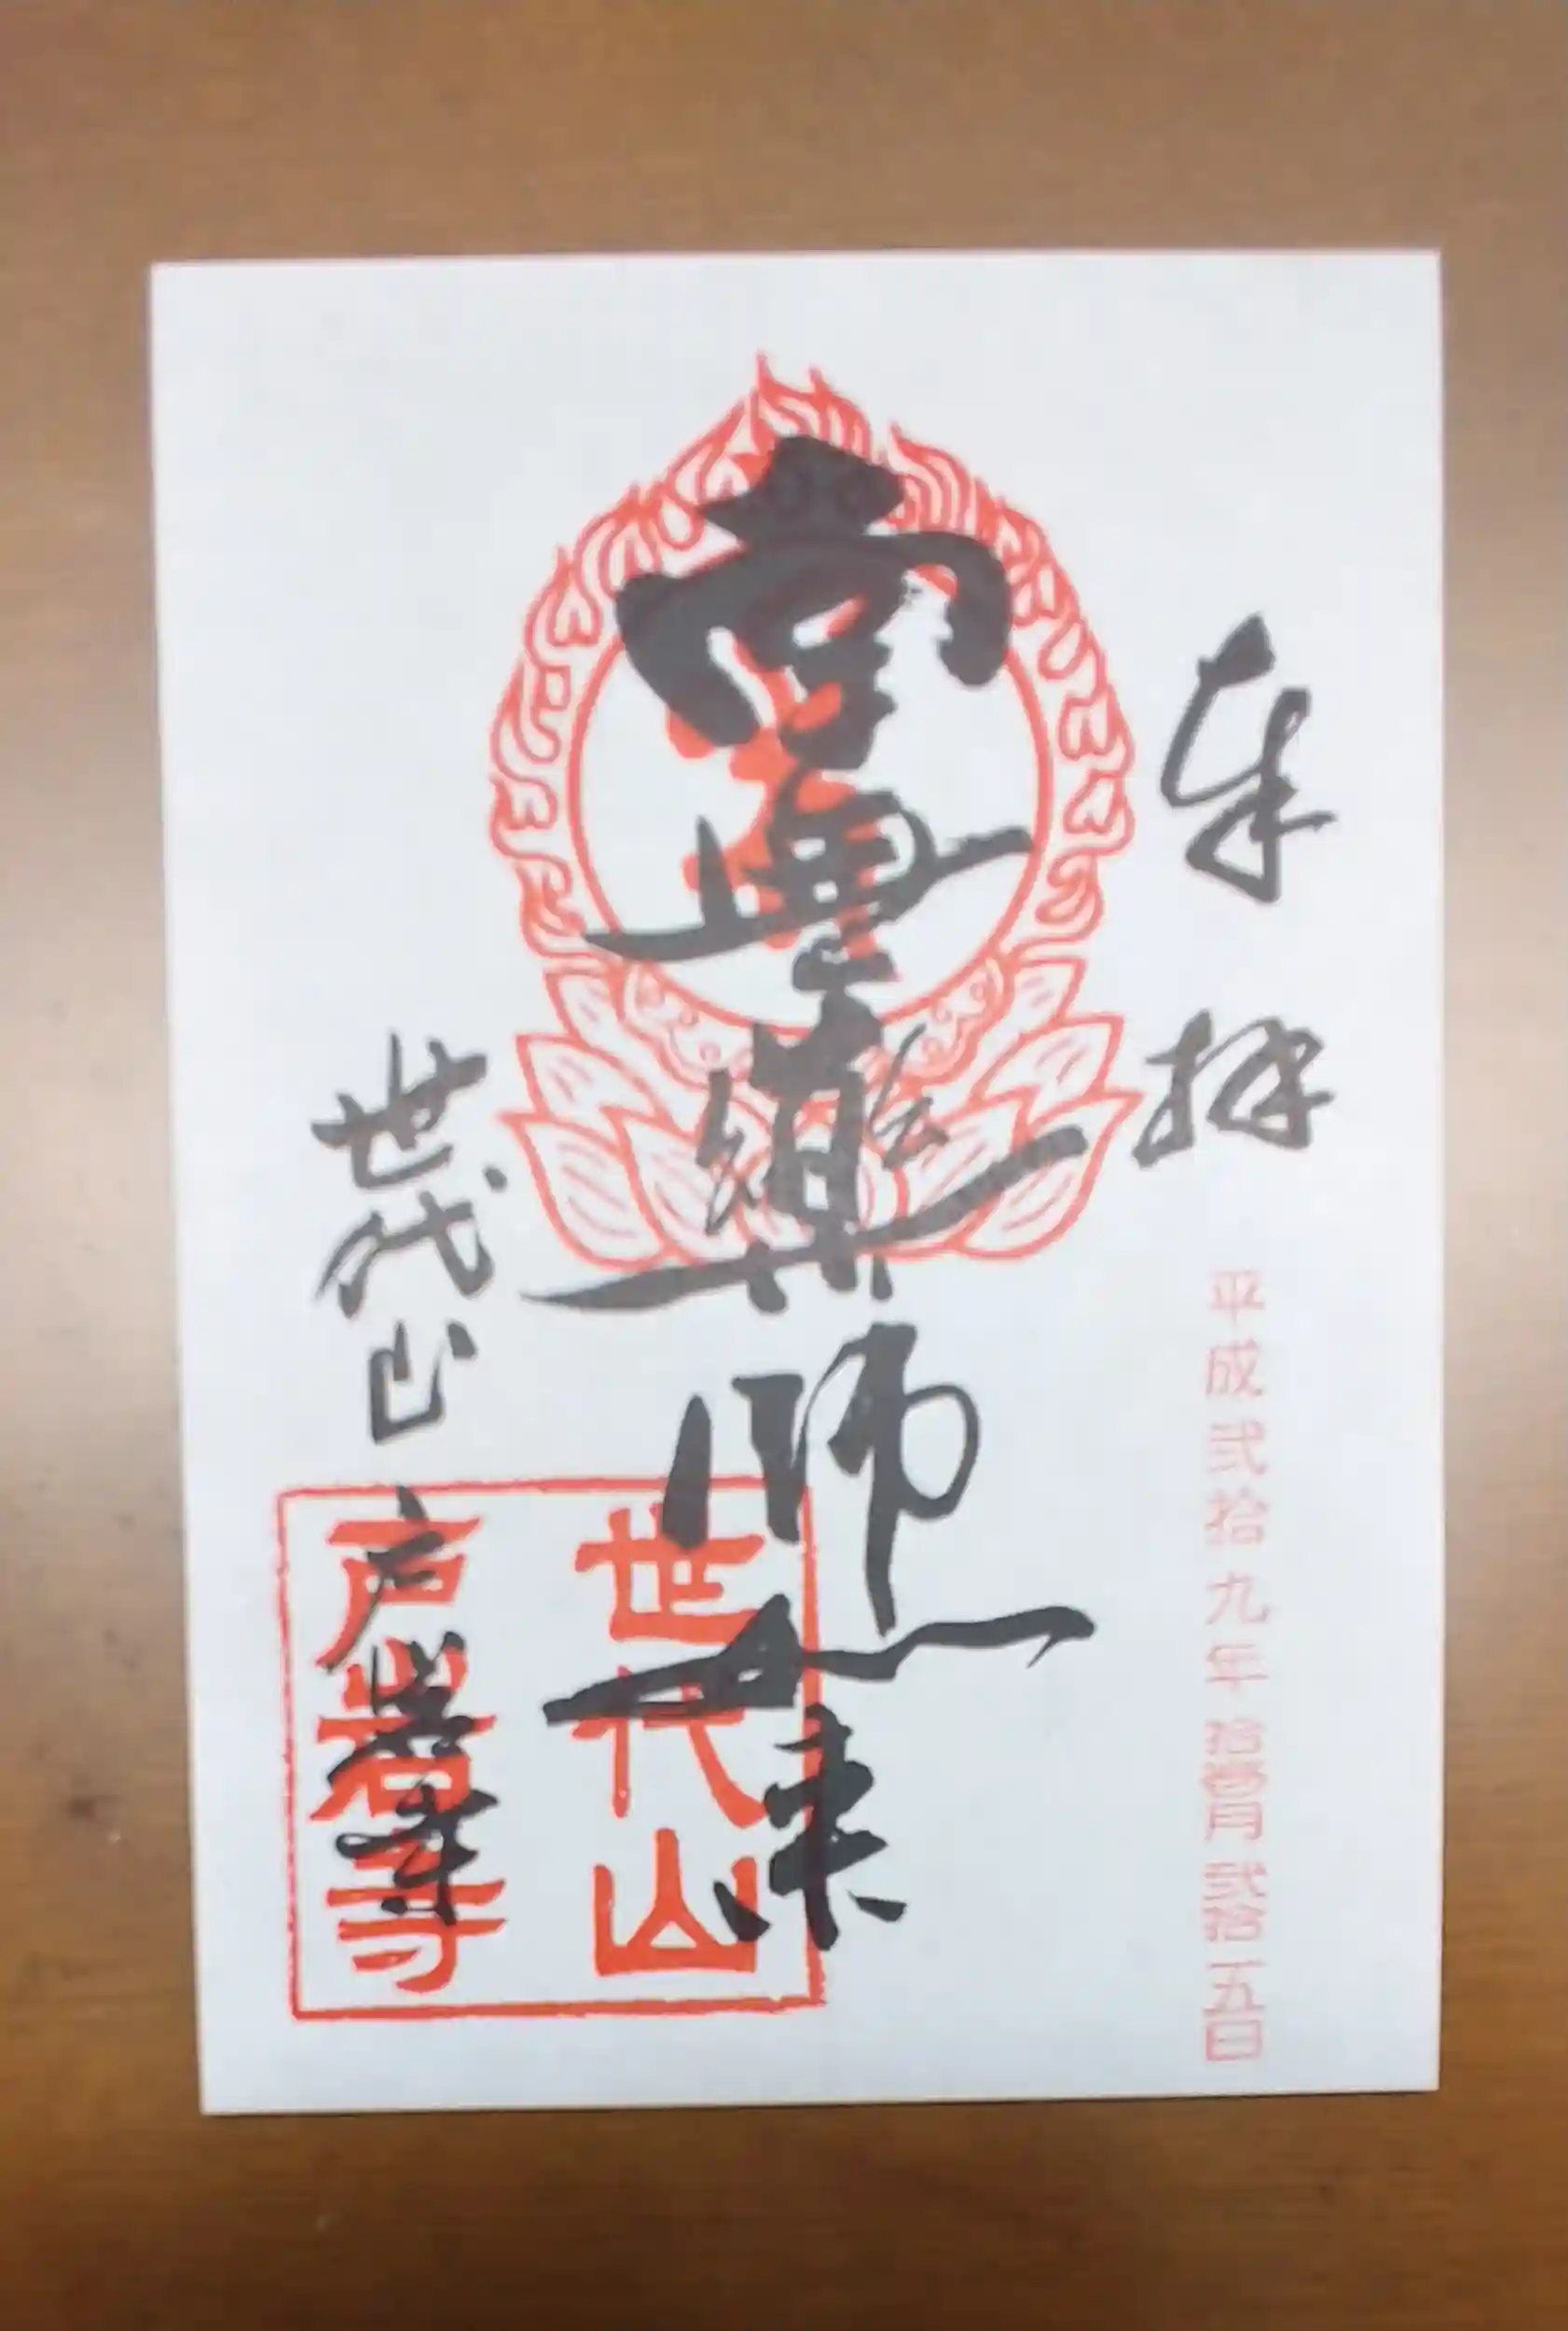 奉拝
平成弐拾九年拾壱月弐拾五日
薬師如来
世代山
戸岩寺
世代山
戸岩寺